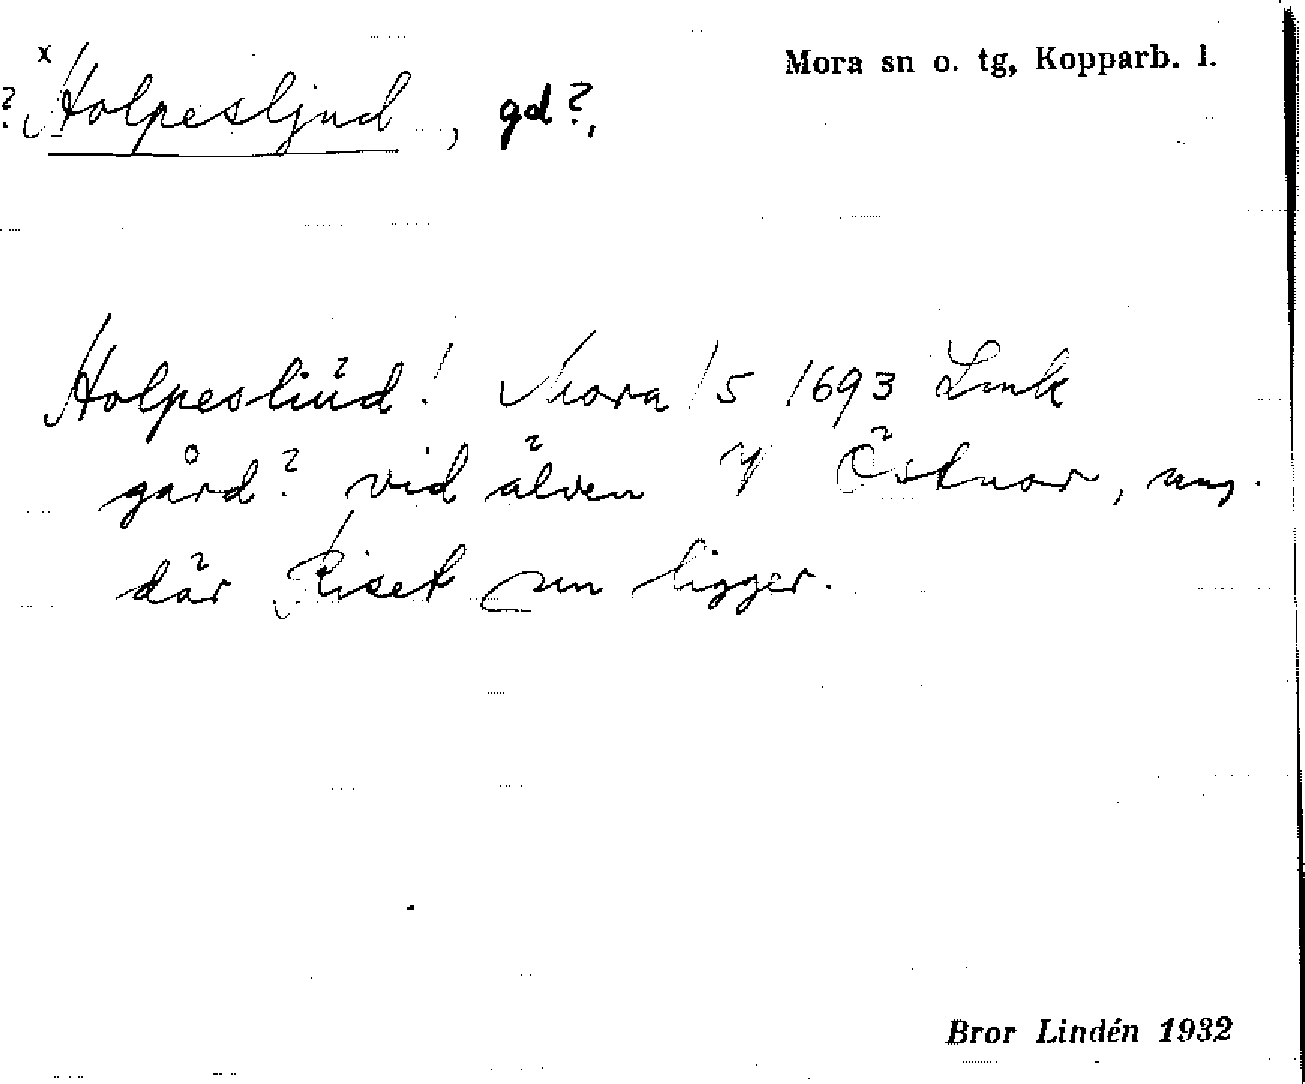 Mora sn o. tg, Kopparb. l.
x
? Holpesljud, gd?,
Holpesliüd! Mora 15 1693 Lmk
gård? vid älven Östnor, ung.
där Riset nu ligger.
Bror Lindén 1932